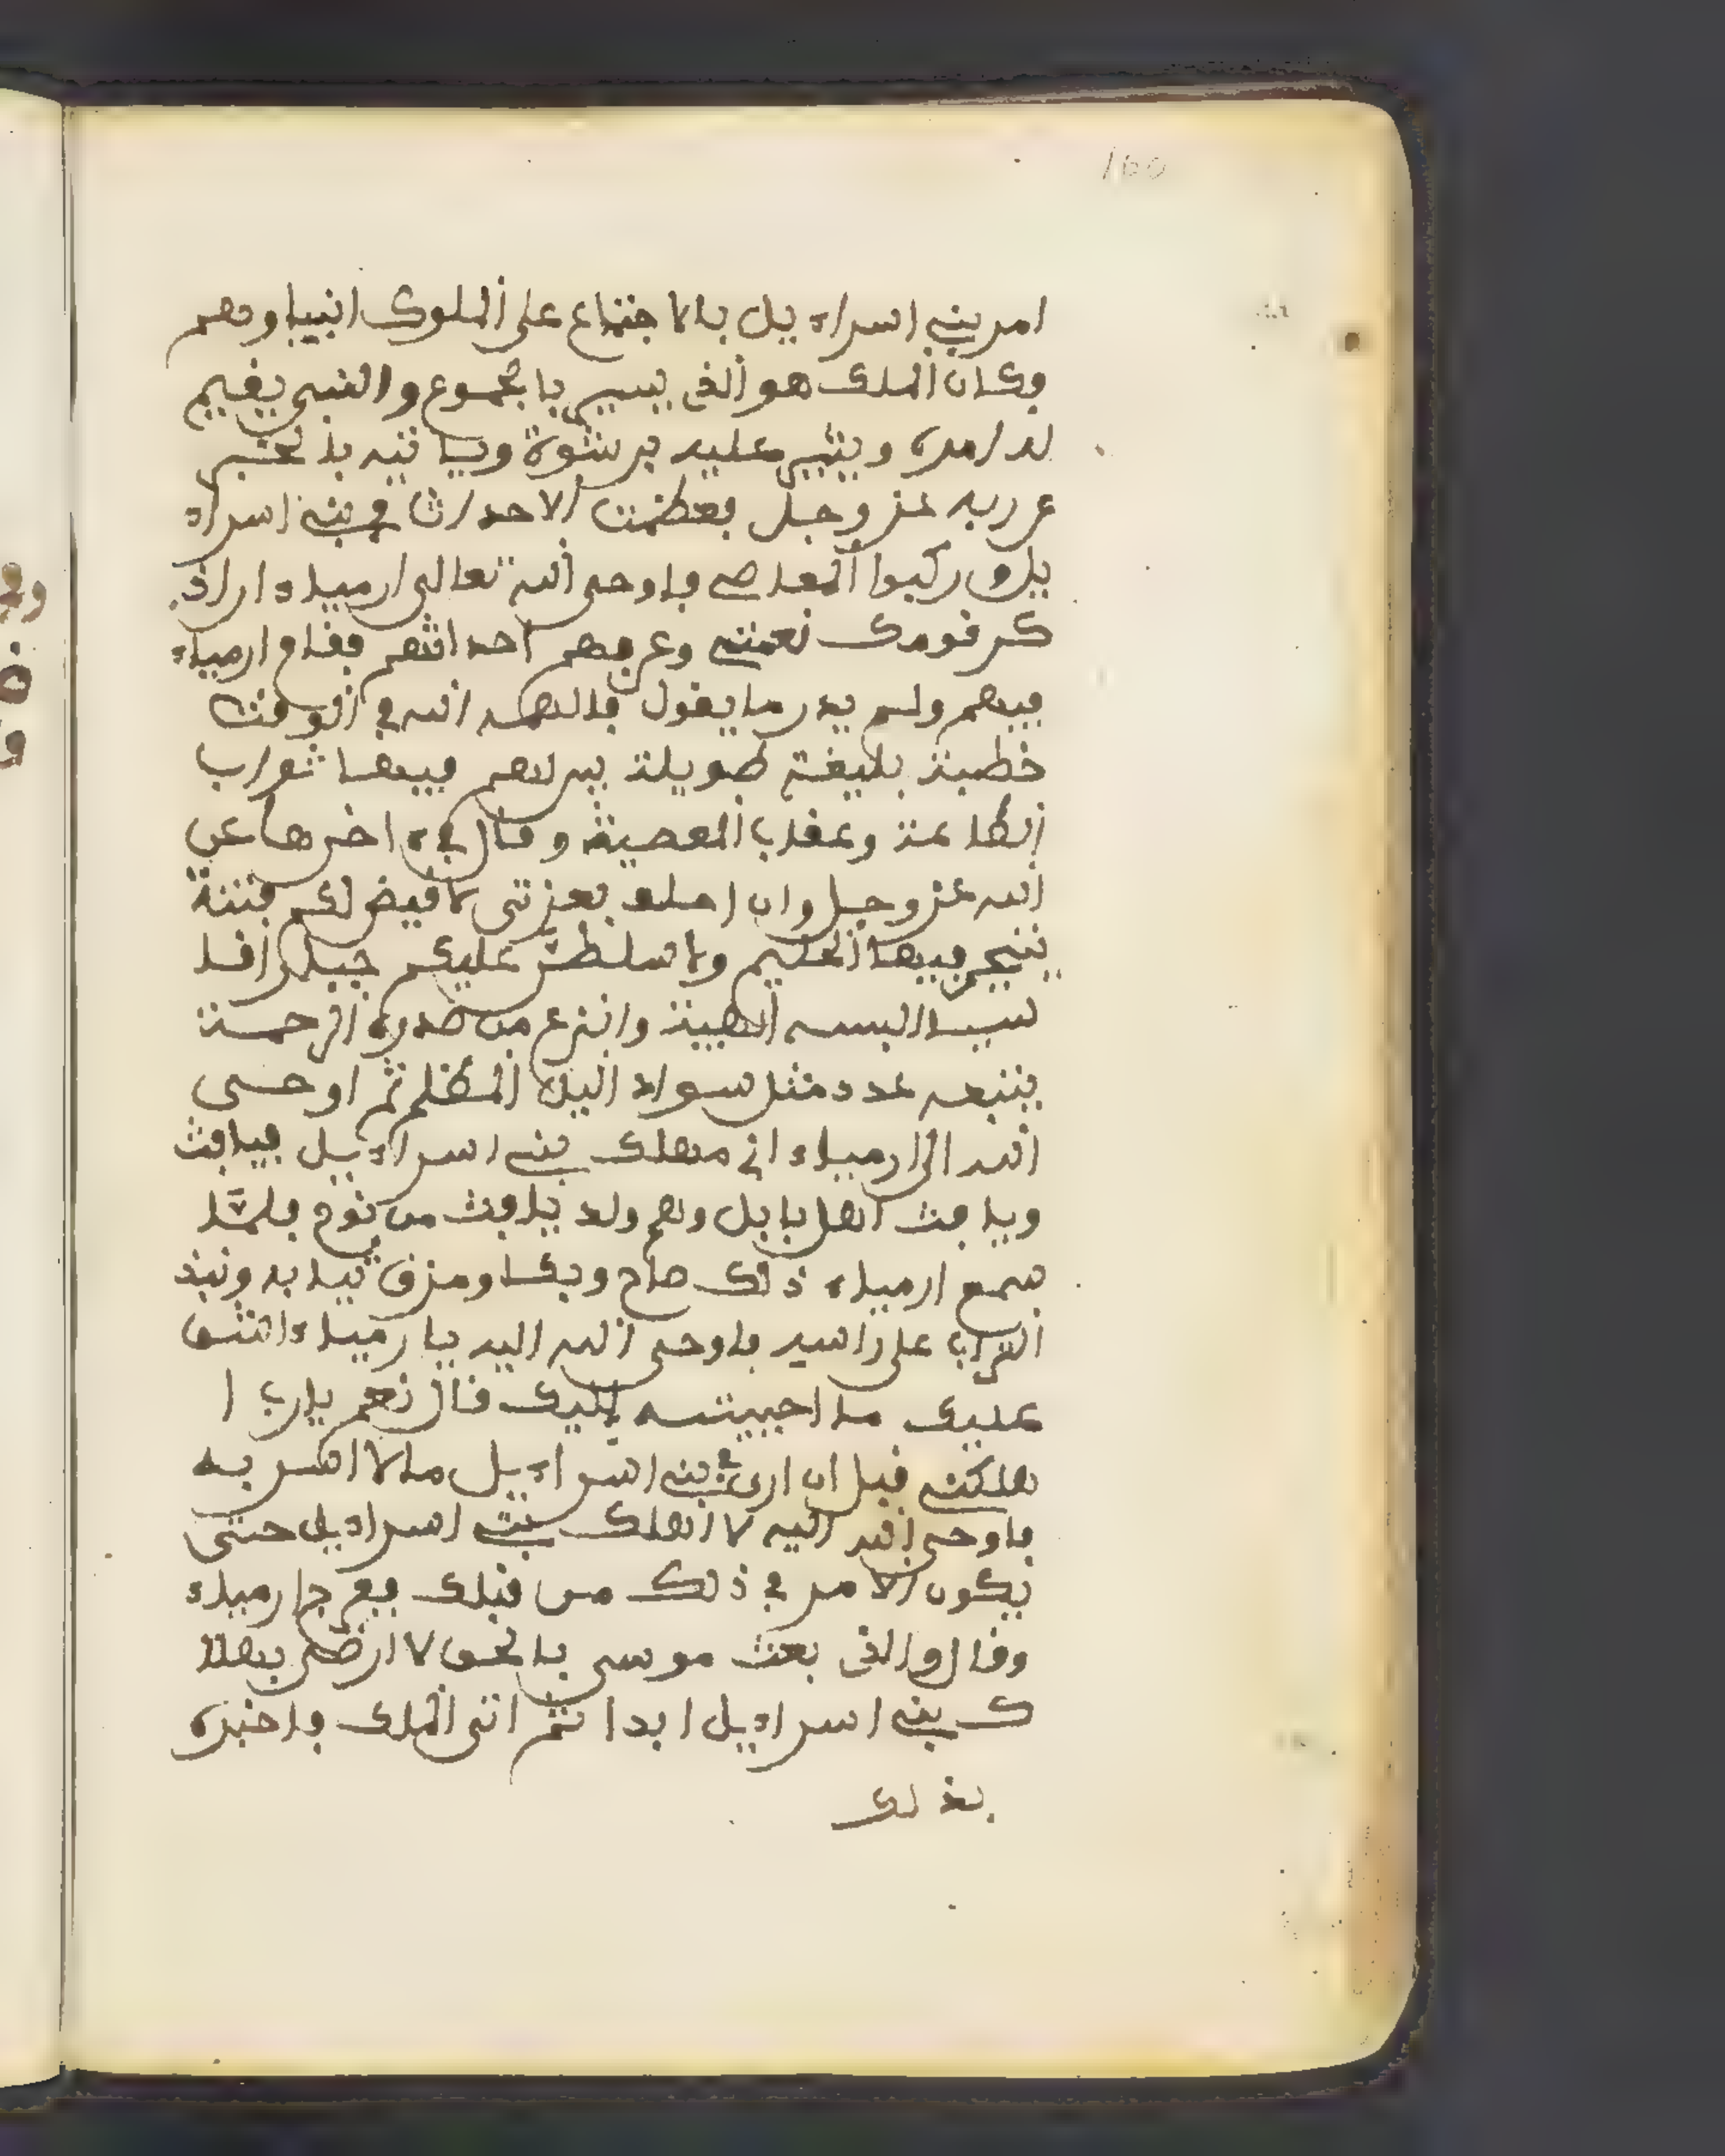 160
امر بني اسراءيل بالاجتماع على الملوك انبياوهم
وكان الملك هو الذى يسير بالجموع والنبي يقيم
له امره ويشير عليه برشوة وياتيه بالخبر
عن ربه عز وجل فعظمت الاحداث في بني اسراء
يل وركبوا المعاصي فاوحى الله تعالى ارمياء ان اذ
كر قومك نعمتي وعرفهم احداثهم فقام ارمياء
فيهم ولم يدر ما يقول فالهمه الله في الوقت
خطبة بليغة طويلة بين لهم فيها ثواب
الطاعة وعقاب المعصية وقال في ءاخرها عن
الله عز وجل وان احلف بعزتى لاقيض لكم فتنة
يتحير فيها الحليم ولاسلطن عليكم جبارا قا
سيا البسه الهيبة وانزع من صدره الرحمة
يتبعه عدد مثل سواد اليل المظلم ثم اوحى
الله الى ارمياء اني مهلك بني اسراءيل بيافث
ويافث اهل بابل وهم ولد يافث من نوح فلما
سمع ارمياء ذلك صاح وبكا ومزق ثيابه ونبذ
التراب على راسه فاوحى الله اليه يا رمياء اشق
عليك ما احييته اليك قال نعم يارب ا
هلكني قبل ان ارى في بني اسراءيل ما لا اسر به
فاوحى الله اليه لا اهلك بني اسراءيل حتى
يكون الامر في ذلك من قبلك ففرح ارمياء
وقال والذى بعث موسى بالحق لا ارضى بهلا
ك بني اسراءيل ابدا ثم اتى الملك فاخبره
بذلك